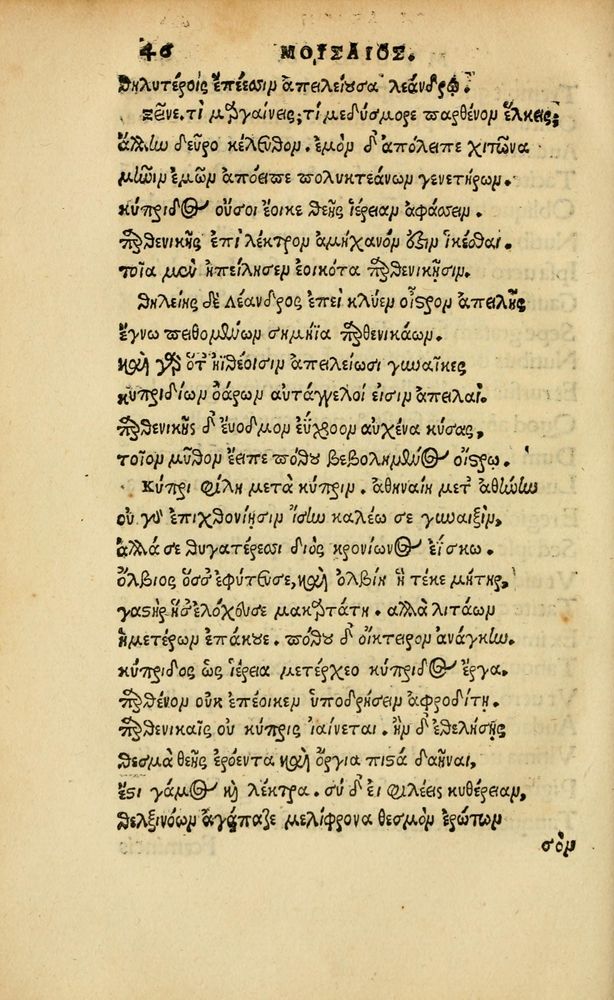 46 ΜΟΥΣΑΙΟΣ.
θηλυτέροις ἐπέεσσιν ἀπειλείουσα λεάνδρῳ.
ξεῖνε, τί μαργαίνεις; τί με δύσμορε παρθένον ἕλκεις;
ἄλλην δεῦρο κέλευθον. ἐμὸν δ' ἀπόλειπε χιτῶνα
μῆνιν ἐμῶν ἀπόειπε πολυκτεάνων γενετήρων.
κύπριδος οὔ σοι ἔοικε θεῆς ἱέρειαν ἀφάσσειν.
παρθενικῆς ἐπὶ λέκτρον ἀμήχανόν ὅξιν ἱκέσθαι.
τοῖα μὲν ἠπείλησεν ἐοικότα παρθενικῇσιν.
θηλείης δὲ Λέανδρος ἐπεὶ κλύεν οἶστρον ἀπειλῆς
ἔγνω πειθομένων σημήϊα παρθενικάων.
καὶ γὰρ ὅτ' ἠϊθέοισιν ἀπειλείωσι γυναῖκες
κυπριδίων ὀάρων αὐτάγγελοί εἰσιν ἀπειλαί.
παρθενικῆς δ' ἔνοδμον εὔχροον αὐχένα κύσας,
τοῖον μῦθον ἔειπε πόθου βεβολημένος οἴστρῳ.
Κύπρι φίλη μετὰ κύπριν. ἀθηναίη μετ' ἀθήνην
οὐ γὰρ ἐπιχθονίῃσιν ἴσην καλέω σε γυναιξὶν,
ἀλλά σε θυγατέρεσσι διὸς κρονίωνος ἐΐσκω.
ὄλβιος ὅς σ' ἐφύτευσε, καὶ ὀλβίη ἣ τέκε μήτηρ,
γαστὴρ ἥ σ' ἐλόχευσε μακαρτάτη. ἀλλὰ λιτάων
ἡμετέρων ἐπάκουε. πόθου δ' οἴκτειρον ἀνάγκην.
κύπριδος ὡς ἱέρεια μετέρχεο κύπριδος ἔργα.
παρθένον οὐκ ἐπέοικεν ὑποδρήσσειν ἀφροδίτῃ.
παρθενικαῖς οὐ κύπρις ἰαίνεται. ἢν δ' ἐθελήσῃς
θεσμὰ θεῆς ἐρόεντα καὶ ὄργια πιστὰ δαῆναι,
ἔστι γάμος καὶ λέκτρα. σὺ δ' εἰ φιλέεις κυθέρειαν,
θελξινόων ἀγάπαζε μελίφρονα θεσμὸν ἐρώτων
σὸν